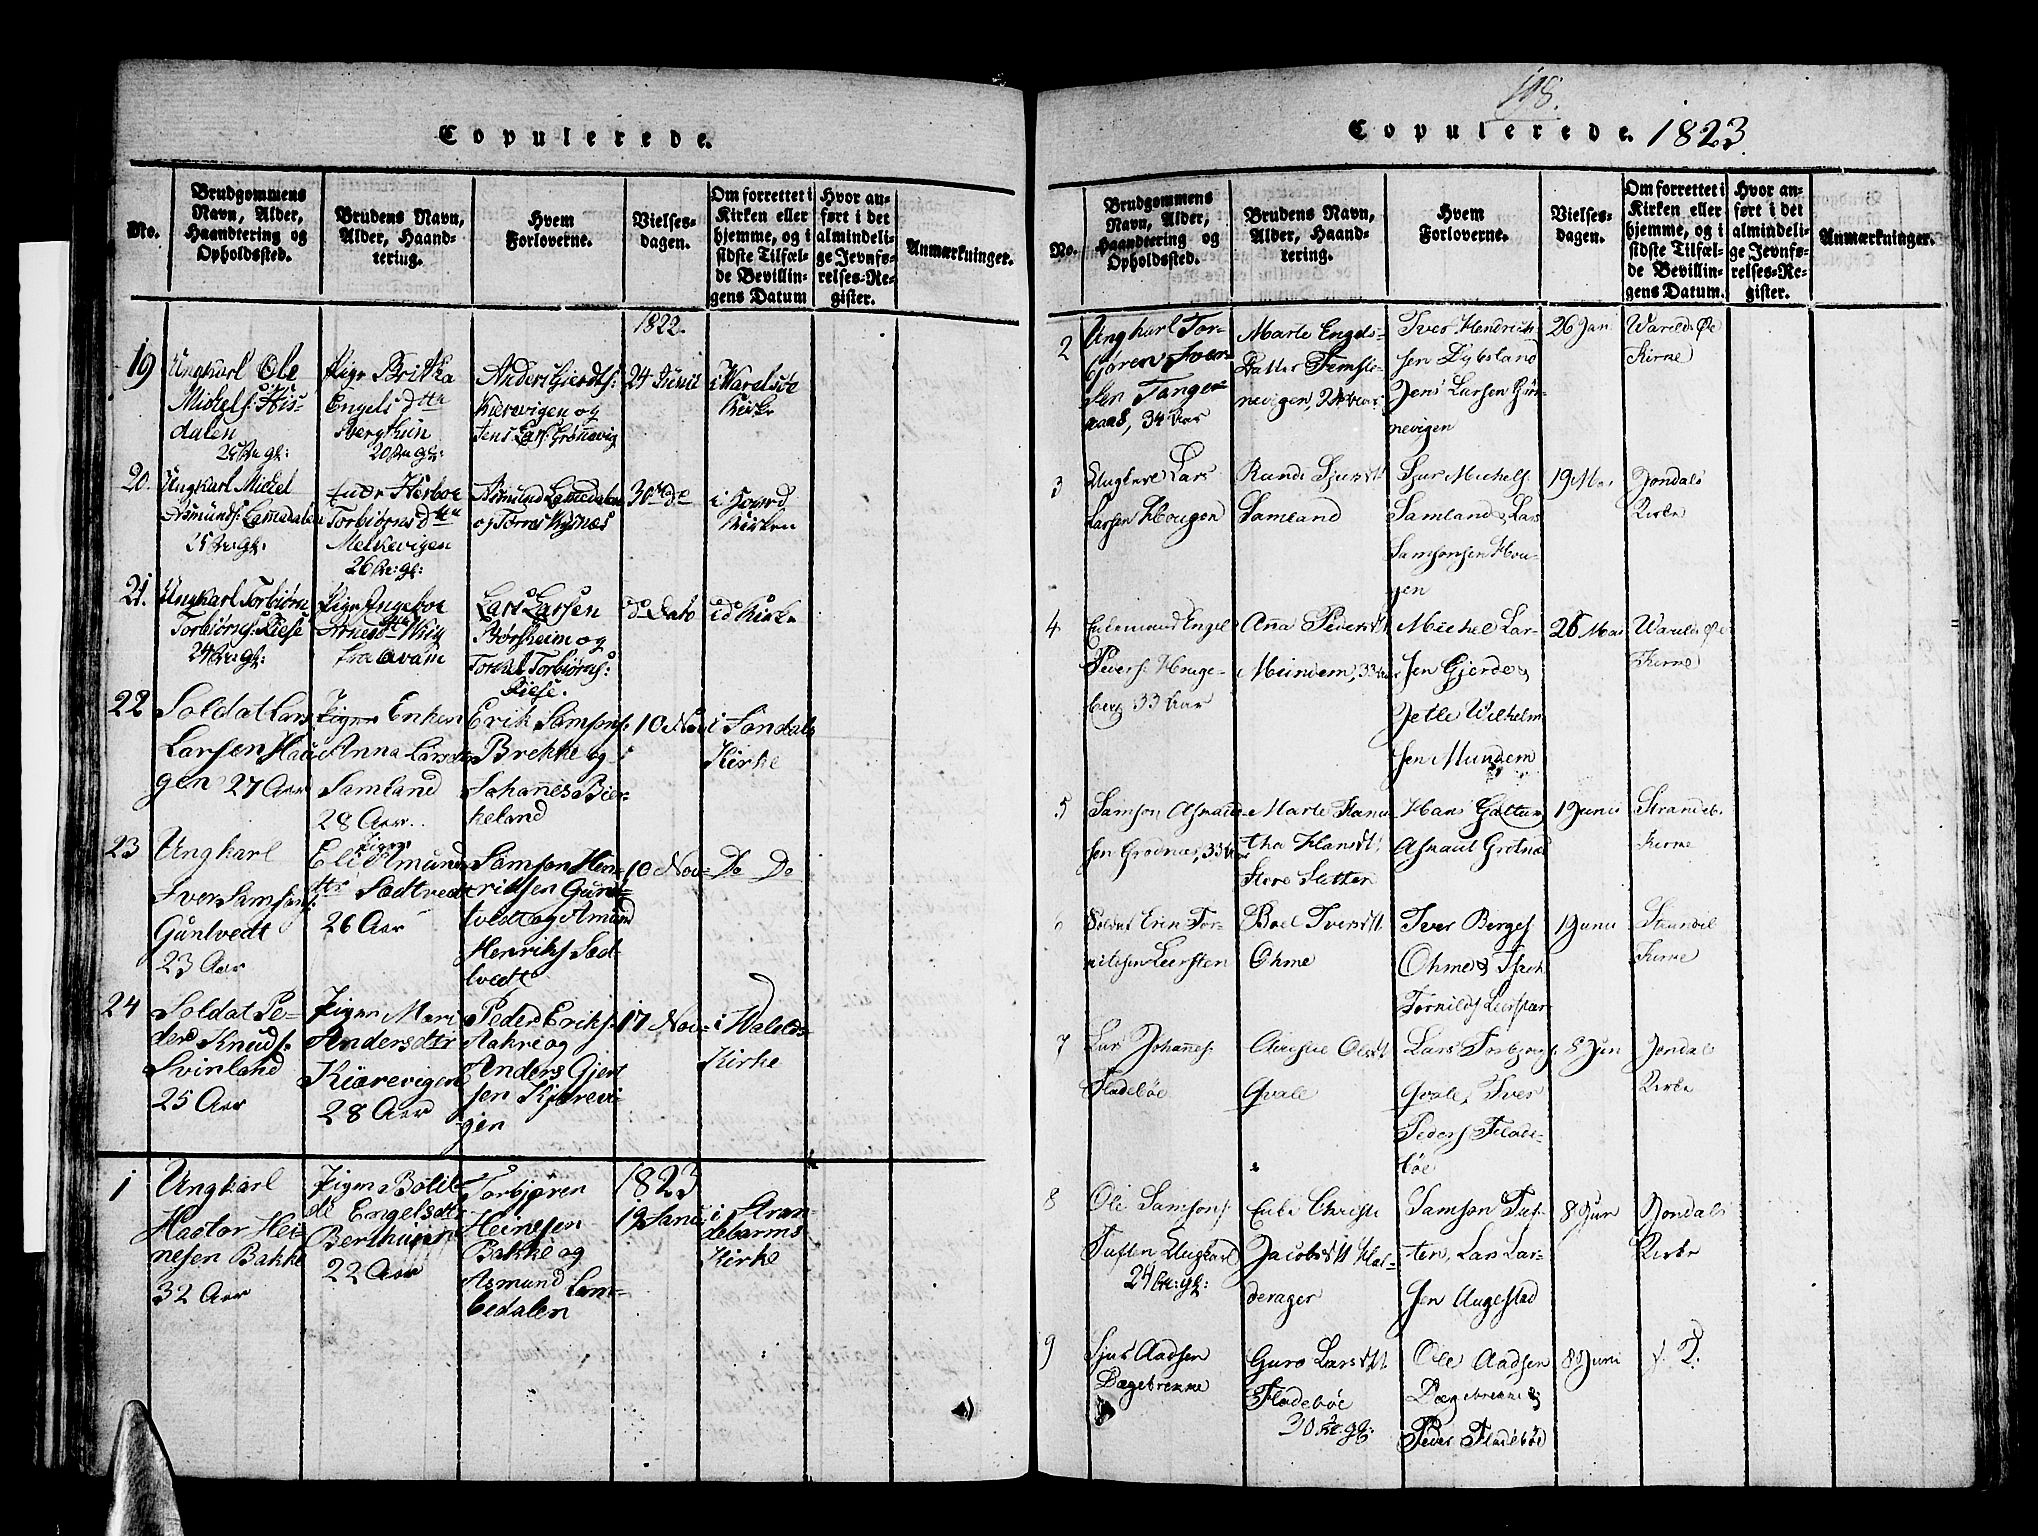 Copulerede.
No.
Brudgommens
Navn, Alder,
Haandtering og
Opholdssted.
Brudens Navn,
Alder, Haand-
tering.
Hvem
Forloverne.
Vielses-
dagen.
Om forrettet i
Kirken eller
hjemme, og i
sidste Tilfæl-
de Bevillin-
gens Datum
Hvor an-
ført i det
almindeli-
ge Jevnfø-
relses-Re-
gister.
Anmærkninger.
1822.
19
Ungkarl Ole
Michels: His-
dalen
Pige Britha
Engels dtter
20 Aar gl:
Anders Gierdts:
Kierevigen og
Jens Lars: Grønevig
24 Junii
i Varelsöe
Kirke
20.
Ungkarl Michel
Asmunds: Lammedalen
25 Aar gl:
Herboe
Torbiörns dtter
Melkevigen
26 Aar gl:
Asmund Lammedalen
og
30te
i
Kirken
21.
Ungkarl Torbiörn
Torbiörns:
24 Aar gl:
Pige Ingeboe
Arnes dtter
fra
Lars Larsen
Börsheim og
Torkel Torbiörns:
do Dato
i do Kirke
22
Soldat Lars
Larsen Hau-
gen 27 Aar
Enken
Anna Larsdtr
Samland
28 Aar.
Erik Samsons:
Brekke og
Johannes Bier-
keland
10 Nov
i Jondals
Kirke
23
Ungkarl
Iver Samsons:
Guntvedt
23 Aar
Pigen
Eli Amunds
dtr Sædtvedt
26 Aar
Samson Hen-
riksen Gunt-
tvedt og Amund
Henriks Sæd-
tvedt
10 Nov
Do Do
24
Soldat Pe-
der Knuds:
Svinland
25 Aar
Pigen Mari
Andersdtr
Kiærevigen
28 Aar
Peder Eriks:
Aakre og
Anders Gjert
sen Kjærevi-
gen
17 Nov
i Walds-
Kirke
1
Ungkarl
Hactor Hei-
nesen Bakke
32 Aar
Pigen Botil-
de Engelsdtr
Berthuun
22 Aar
Torbjøren
Heinesen
Bakke og
Asmund Lam-
medalen
1823
19 Janu
i Stran-
debarms
Kirke
118.
Copulerede. 1823
No.
Brudgommens
Navn, Alder,
Haandtering og
Opholdssted.
Brudens Navn,
Alder, Haand-
tering.
Hvem
Forloverne.
Vielses-
dagen.
Om forrettet i
Kirken eller
hjemme, og i
sidste Tilfæl-
de Bevillin-
gens Datum.
Hvor an-
ført i det
almindeli-
ge Jevnfø-
relses-Re-
gister.
Anmærkninger.
2
Ungkarl Tor-
bjøren Iver-
sen Tange-
raas, 34 Aar
Marte Engels-
Datter
nevigen, 24 Aar
Iver Hendrich-
sen Dybsland
Jens Larsen Grø-
nevigen
26 Jan
Warelds Øe
Kirke
3
Ungkarl Lars
Larsen Hougen
Rande Sjursdt
Samland
Sjur Michels
Samland & Lars
Samsonsen Hou-
gen
19 Mai
Jondals
Kirke
4
Enkemand Engel
Peders: Hauge-
berg 33 Aar
Ana Pedersdt
Mundem, 33 Aar
Michel Lar-
sen Gjerde &
Jetle Wilhelm
sen Mundem
26 Mai
Warelds Øe
Kirke
5
Samson Asmund-
sen
Marte
Hansdt
Hans
Asmund
1 Junii
Strandeb.
Kirke
6
Soldat Erik Tor-
Boel Iversdt
Ohme
Iver Berges
Ohme &
Tornilds
1 Junii
Strandeb
Kirke
7
Lars Johans:
Fladebøe
Christie Olsdt
Qvale
Lars Torbjørns
Qvale, Iver
Peders Flade-
bøe
8 Jun
Jondals
Kirke
8
Ole Samsons
Tuften Ungkarl
24 Aar gl:
Enke Christi
Jacobsdt Hal-
derager
Samson Tuf-
ten, Lars Lar-
sen Augestad
8 Jun
Jondals
Kirke
9
Sjur Aadsen
Dægebrenne
Guro Larsdt
Fladebøe
30 Aar gl:
Ole Aadsen
Dægebrenne &
Peder Fladebøe
8 Juni